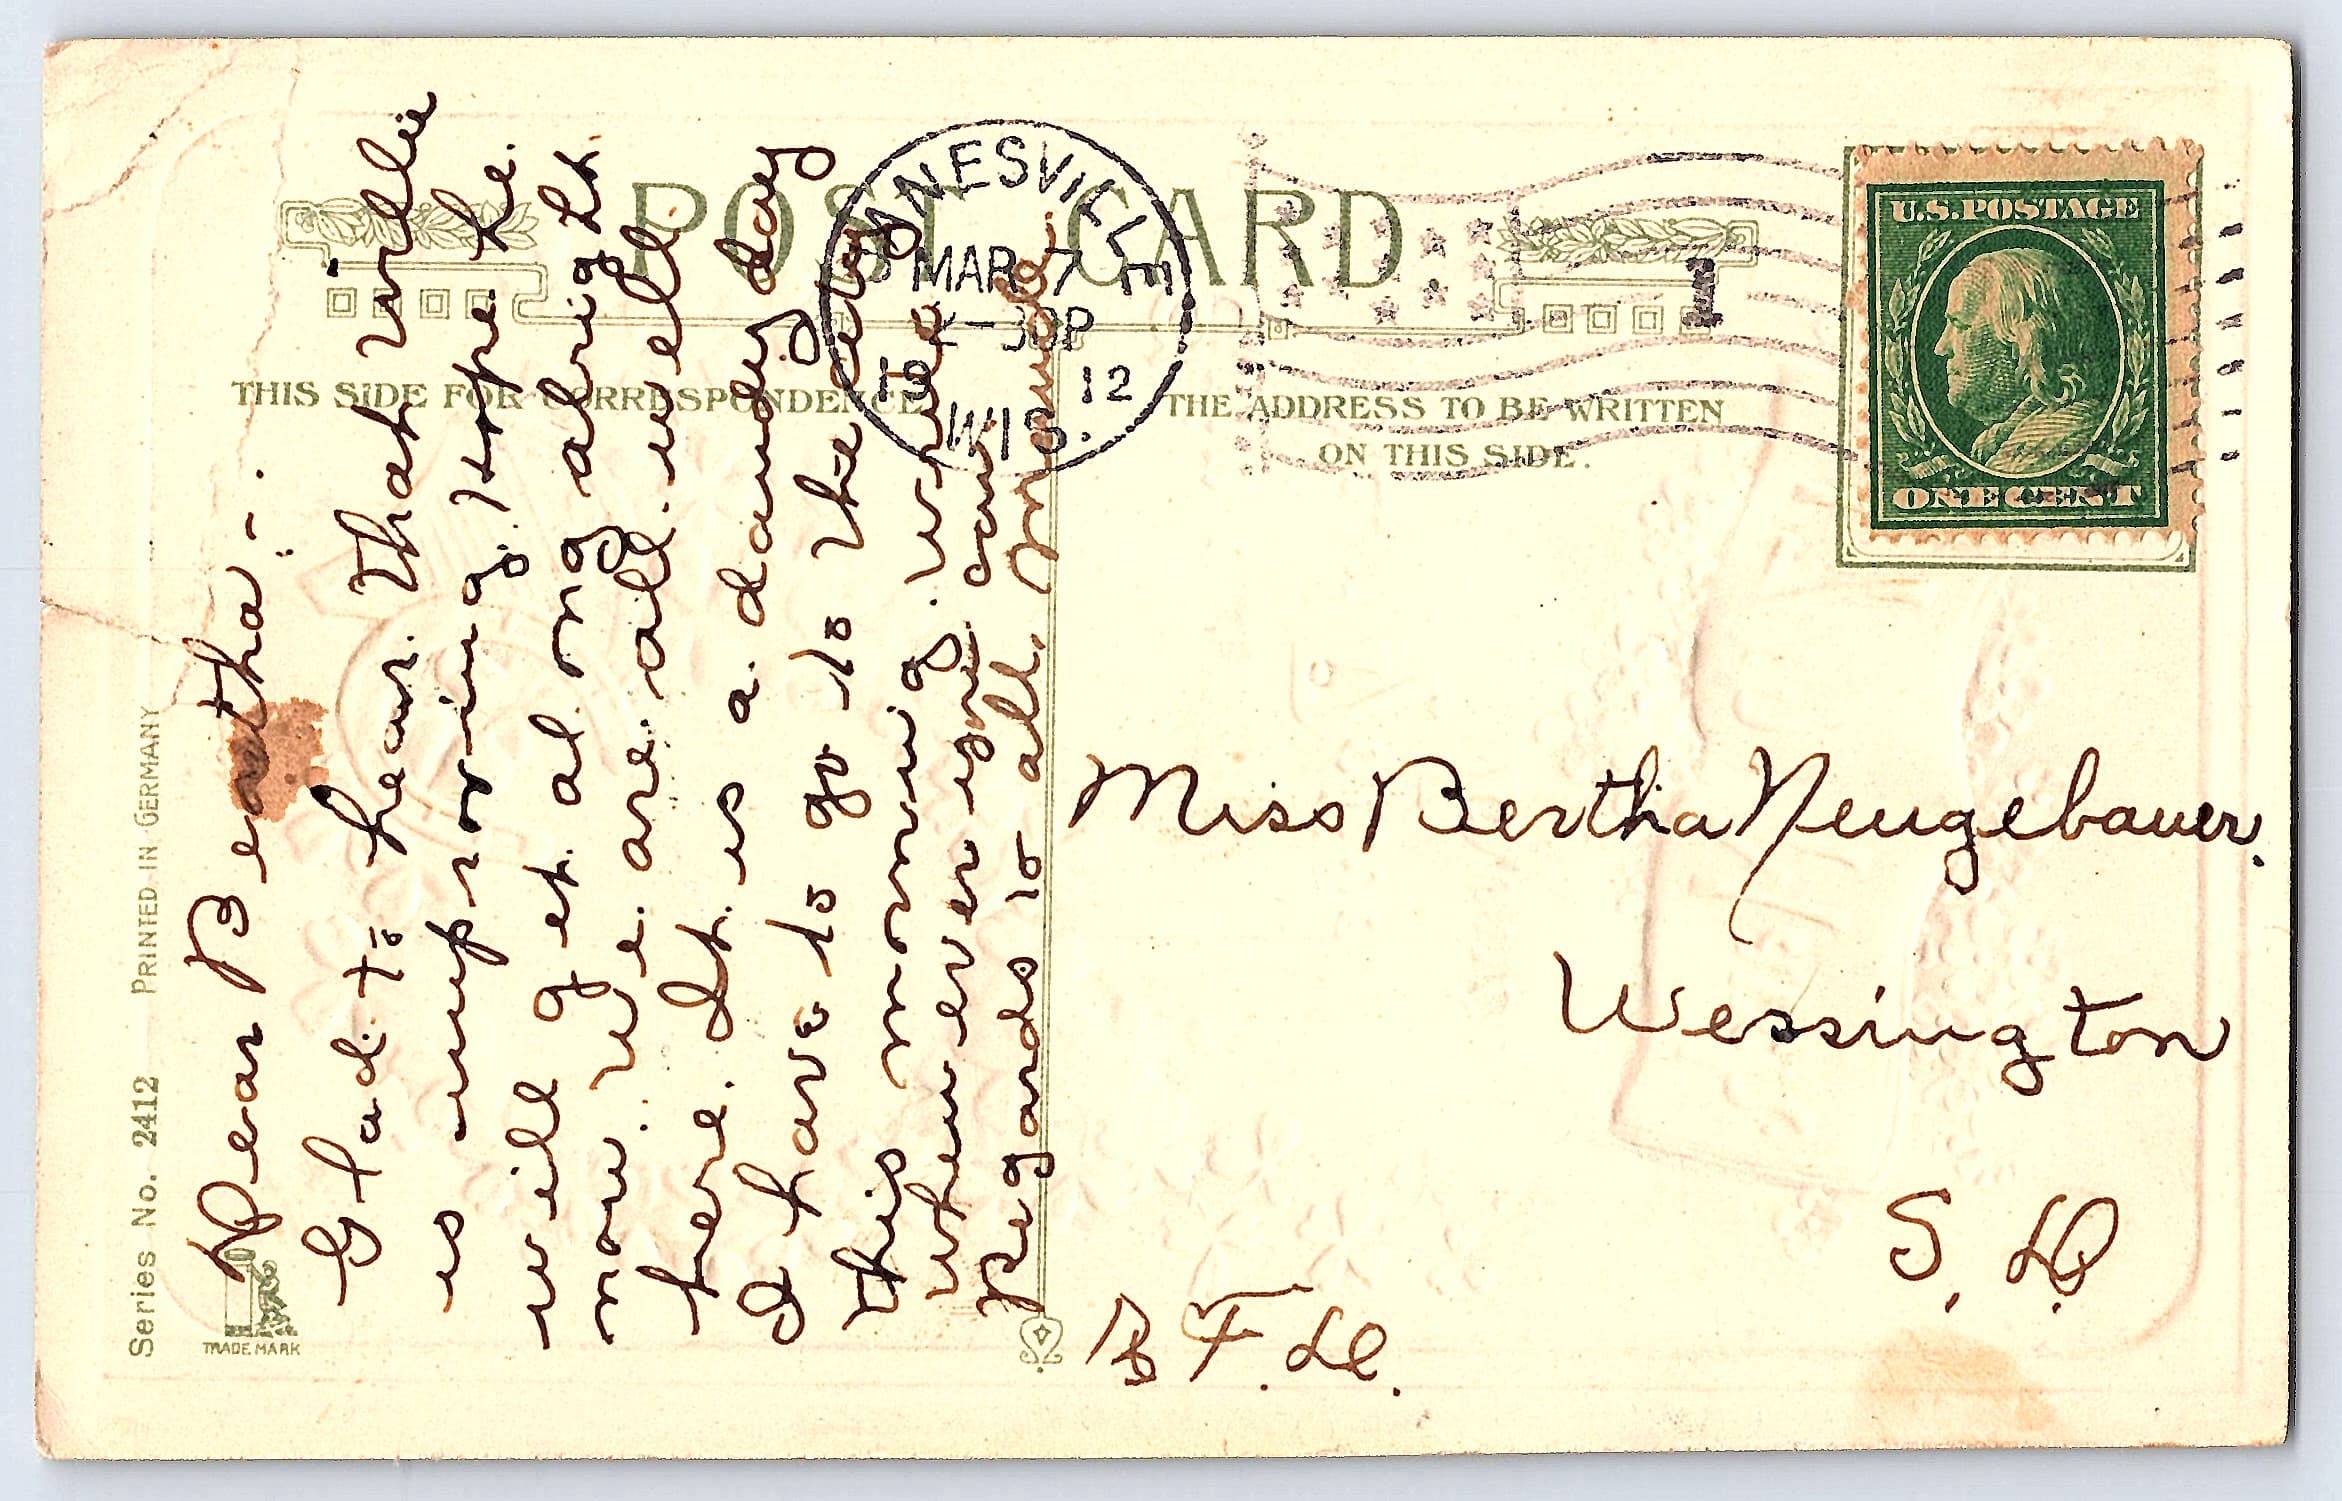 POST CARD
THIS SIDE FOR CORRESPONDENCE
THE ADDRESS TO BE WRITTEN
ON THIS SIDE.
JANESVILLE
MAR 7
1912
WIS.
1
U.S. POSTAGE
ONE CENT
Series No. 2412 PRINTED IN GERMANY
TRADE MARK
Dear Bertha:-
Glad to hear that Willie
is improving. Hope he
will get along alright
now. We are all well
here. It is a dandy day
I have to go to the city
this morning. Write
whenever you can.
Regards to all,
Miss Bertha Neugebauer.
Wessington
S. D.
R. F. D.